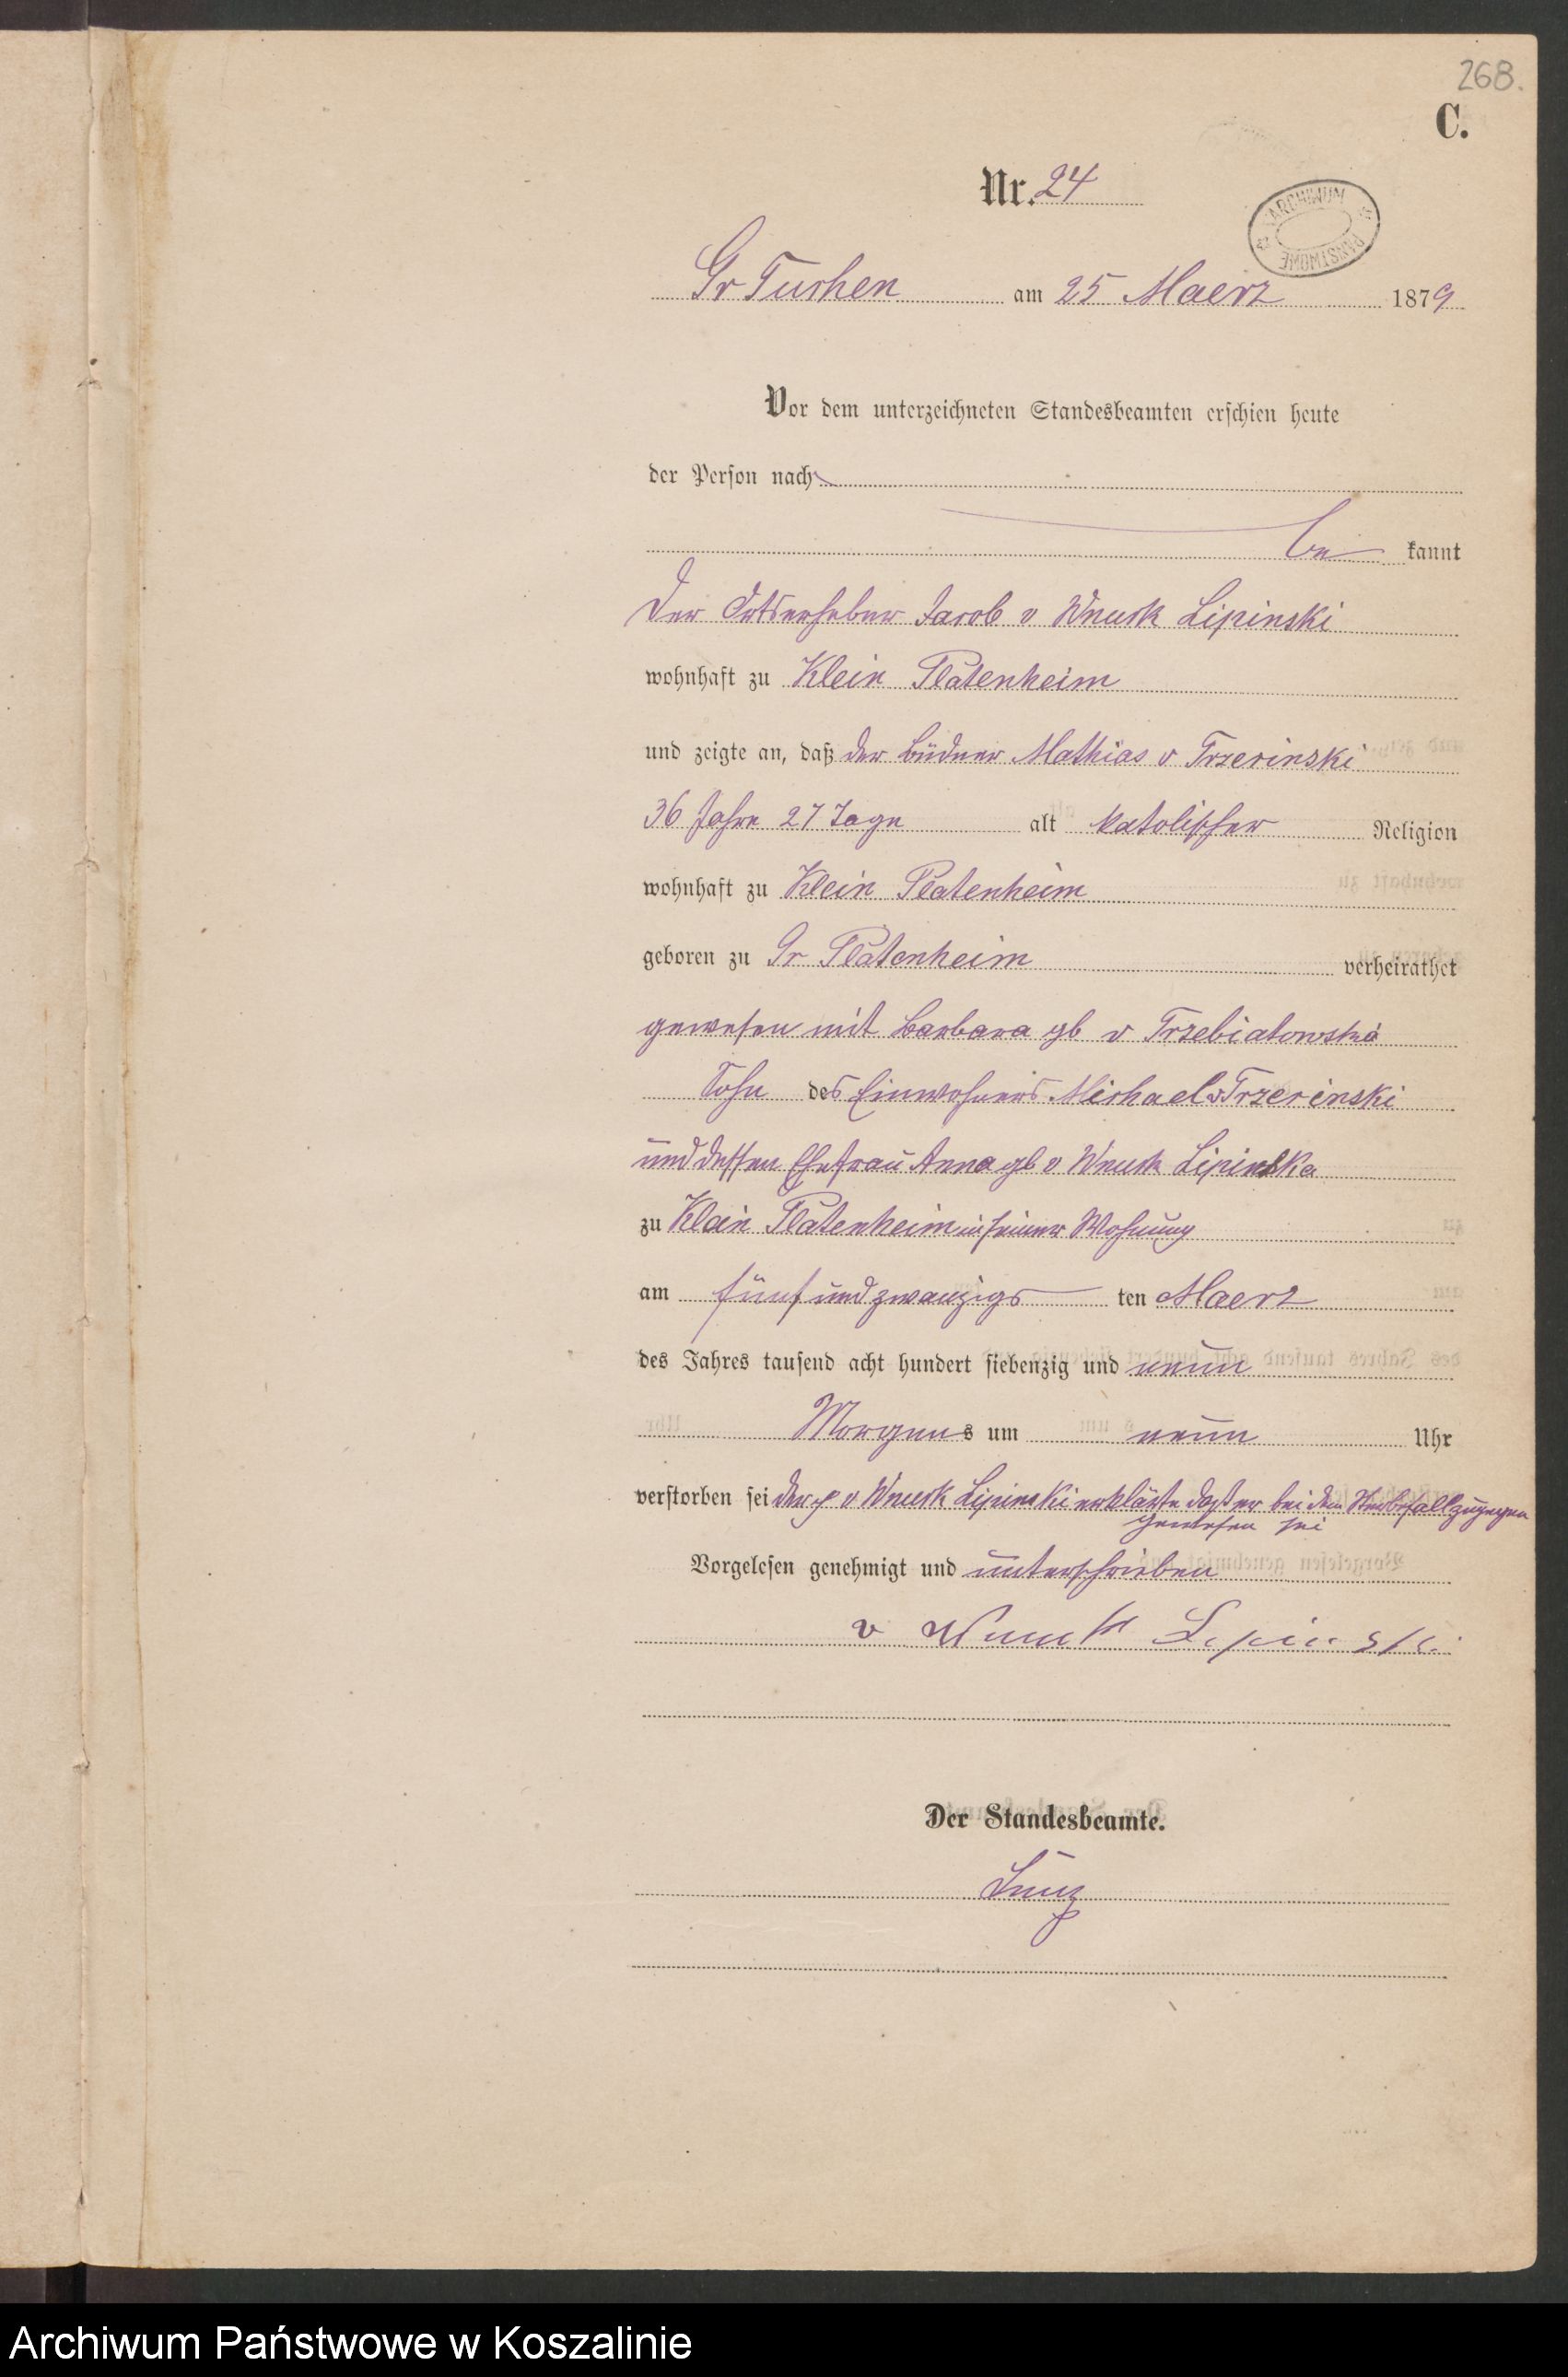 268.
C.
Nr. 24
ARCHIWUM PAŃSTWOWE
Gr Tuchen am 25 Maerz 1879
Vor dem unterzeichneten Standesbeamten erschien heute
der Person nach
be kannt
Der Ortserheber Jacob v Wnuck Lipinski
wohnhaft zu Klein Platenheim
und zeigte an, daß der Büdner Mathias v Trzecinski
36 Jahre 27 Tage alt katolischer Religion
wohnhaft zu Klein Platenheim
geboren zu Gr Platenheim verheirathet
gewesen mit Barbara gb v Trzebiatowska
Sohn des Einwohners Michael v Trzecinski
und dessen Ehefrau Anna gb v Wnuck Lipinska
zu Klein Platenheim in seiner Wohnung
am fünf und zwanzigs ten Maerz
des Jahres tausend acht hundert siebenzig und neun
Morgens um neun Uhr
verstorben sei der p v Wnuck Lipinski erklärte daß er bei dem Sterbefall zugegen
gewesen sei
Vorgelesen genehmigt und unterschrieben
v Wnuck Lipinski
Der Standesbeamte.
Archiwum Państwowe w Koszalinie